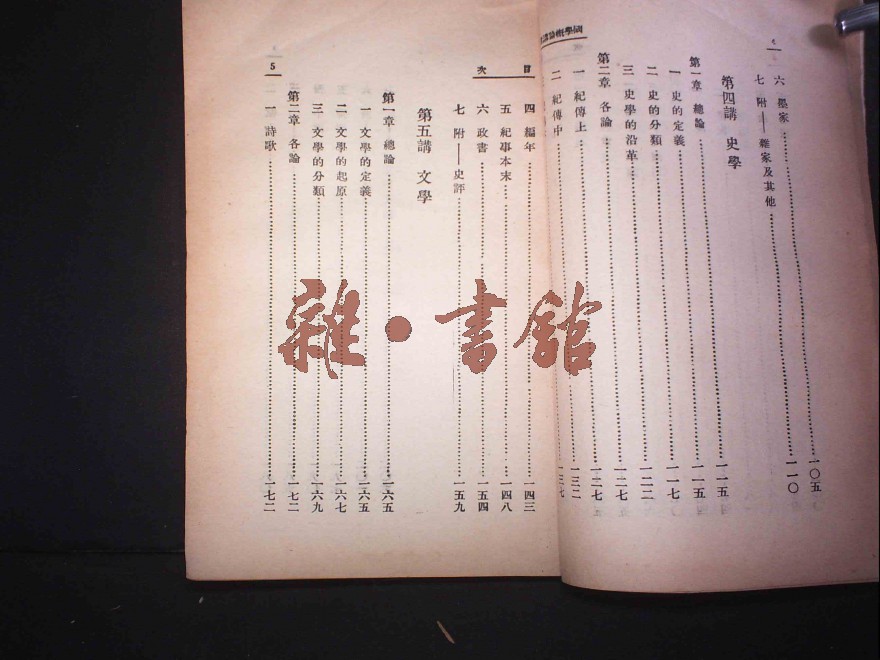 國學概論講
六 墨家……一〇五
七 附——雜家及其他……一一〇
第四講 史學
第一章 總論……一一五
一 史的定義……一一五
二 史的分類……一一七
三 史學的沿革……一二二
第二章 各論……一二七
一 紀傳上……一二七
二 紀傳中……一三二
一三七
目次
四 編年……一四三
五 紀事本末……一四八
六 政書……一五四
七 附——史評……一五九
第五講 文學
第一章 總論……一六五
一 文學的定義……一六五
二 文學的起原……一六七
三 文學的分類……一六九
第二章 各論……一七二
一 詩歌……一七二
5
雜·書館